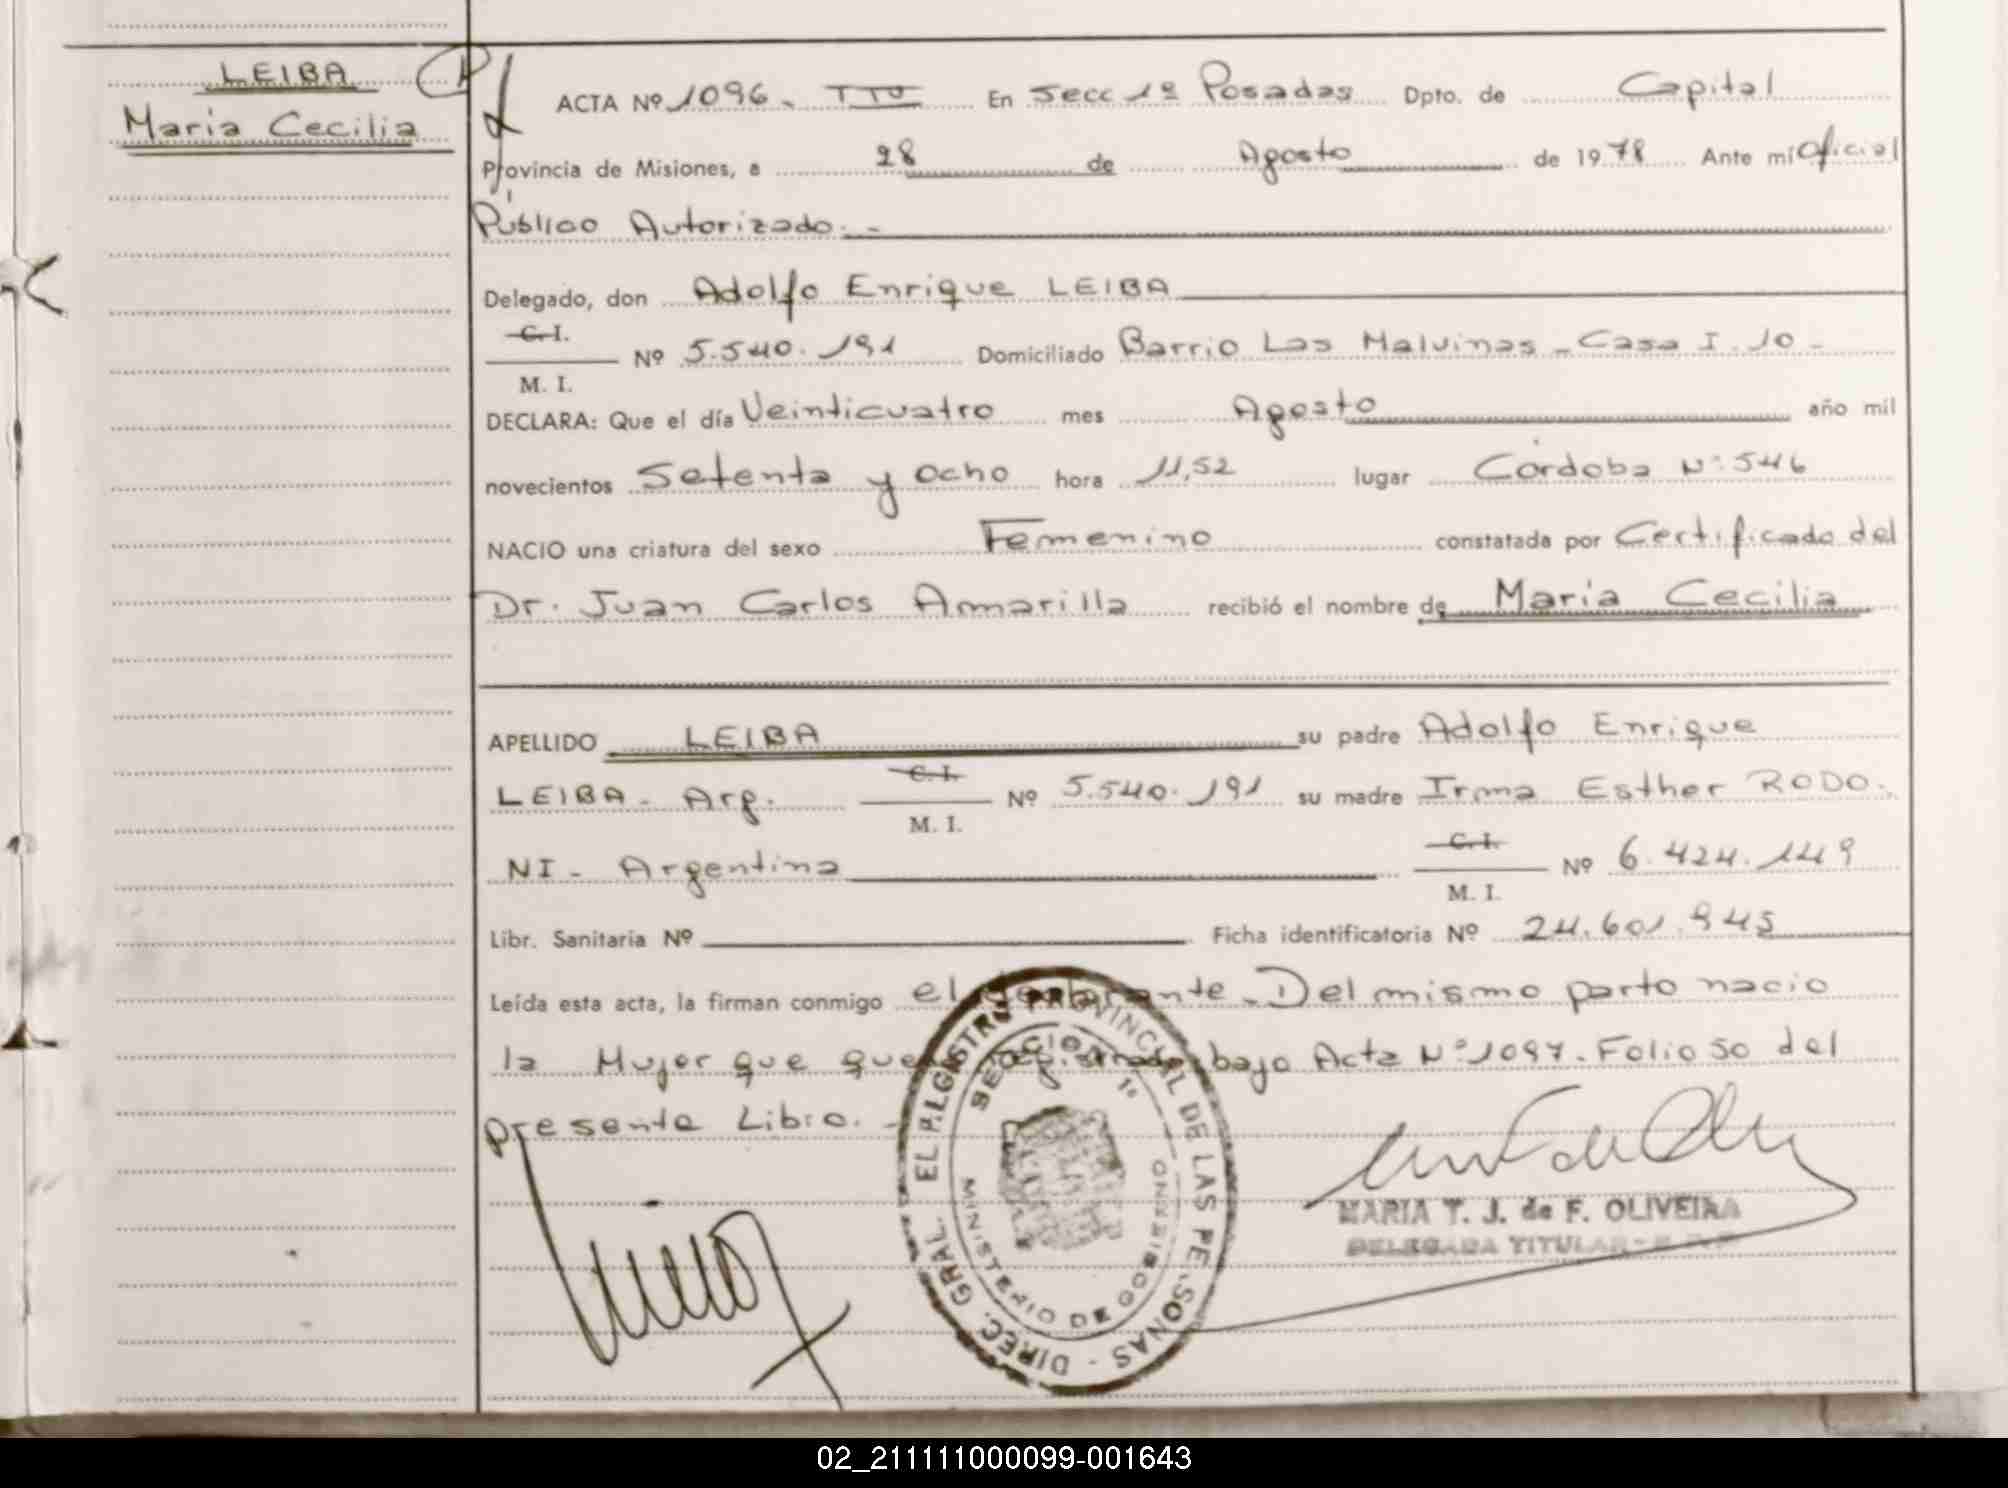 LEIBA
Maria Cecilia
ACTA Nº 1096. TTU En Secc 1º Posadas Dpto. de Capital
Provincia de Misiones, a 28 de Agosto de 1978 Ante mi Oficial
Público Autorizado.-
Delegado, don Adolfo Enrique LEIBA
C. I.
Nº 5.540.191 Domiciliado Barrio Las Malvinas - Casa I. 10 -
M. I.
DECLARA: Que el día Veinticuatro mes Agosto año mil
novecientos Setenta y ocho hora 11,52 lugar Córdoba Nº 546
NACIO una criatura del sexo Femenino constatada por Certificado del
Dr. Juan Carlos Amarilla recibió el nombre de Maria Cecilia
APELLIDO LEIBA su padre Adolfo Enrique
LEIBA - Arg. C. I. Nº 5.540.191 su madre Irma Esther RODO.
M. I.
NI - Argentina C. I. Nº 6.424.149
M. I.
Libr. Sanitaria Nº Ficha identificatoria Nº 24.601.945
Leída esta acta, la firman conmigo el declarante. Del mismo parto nacio
la Mujer que queda registrada bajo Acta Nº 1097. Folio 50 del
presente Libro. -
DIREC. GRAL. EL REGISTRO PROVINCIAL DE LAS PERSONAS
SECCION 1º
MINISTERIO DE GOBIERNO
MARIA T. J. de F. OLIVEIRA
DELEGADA TITULAR
02_211111000099-001643